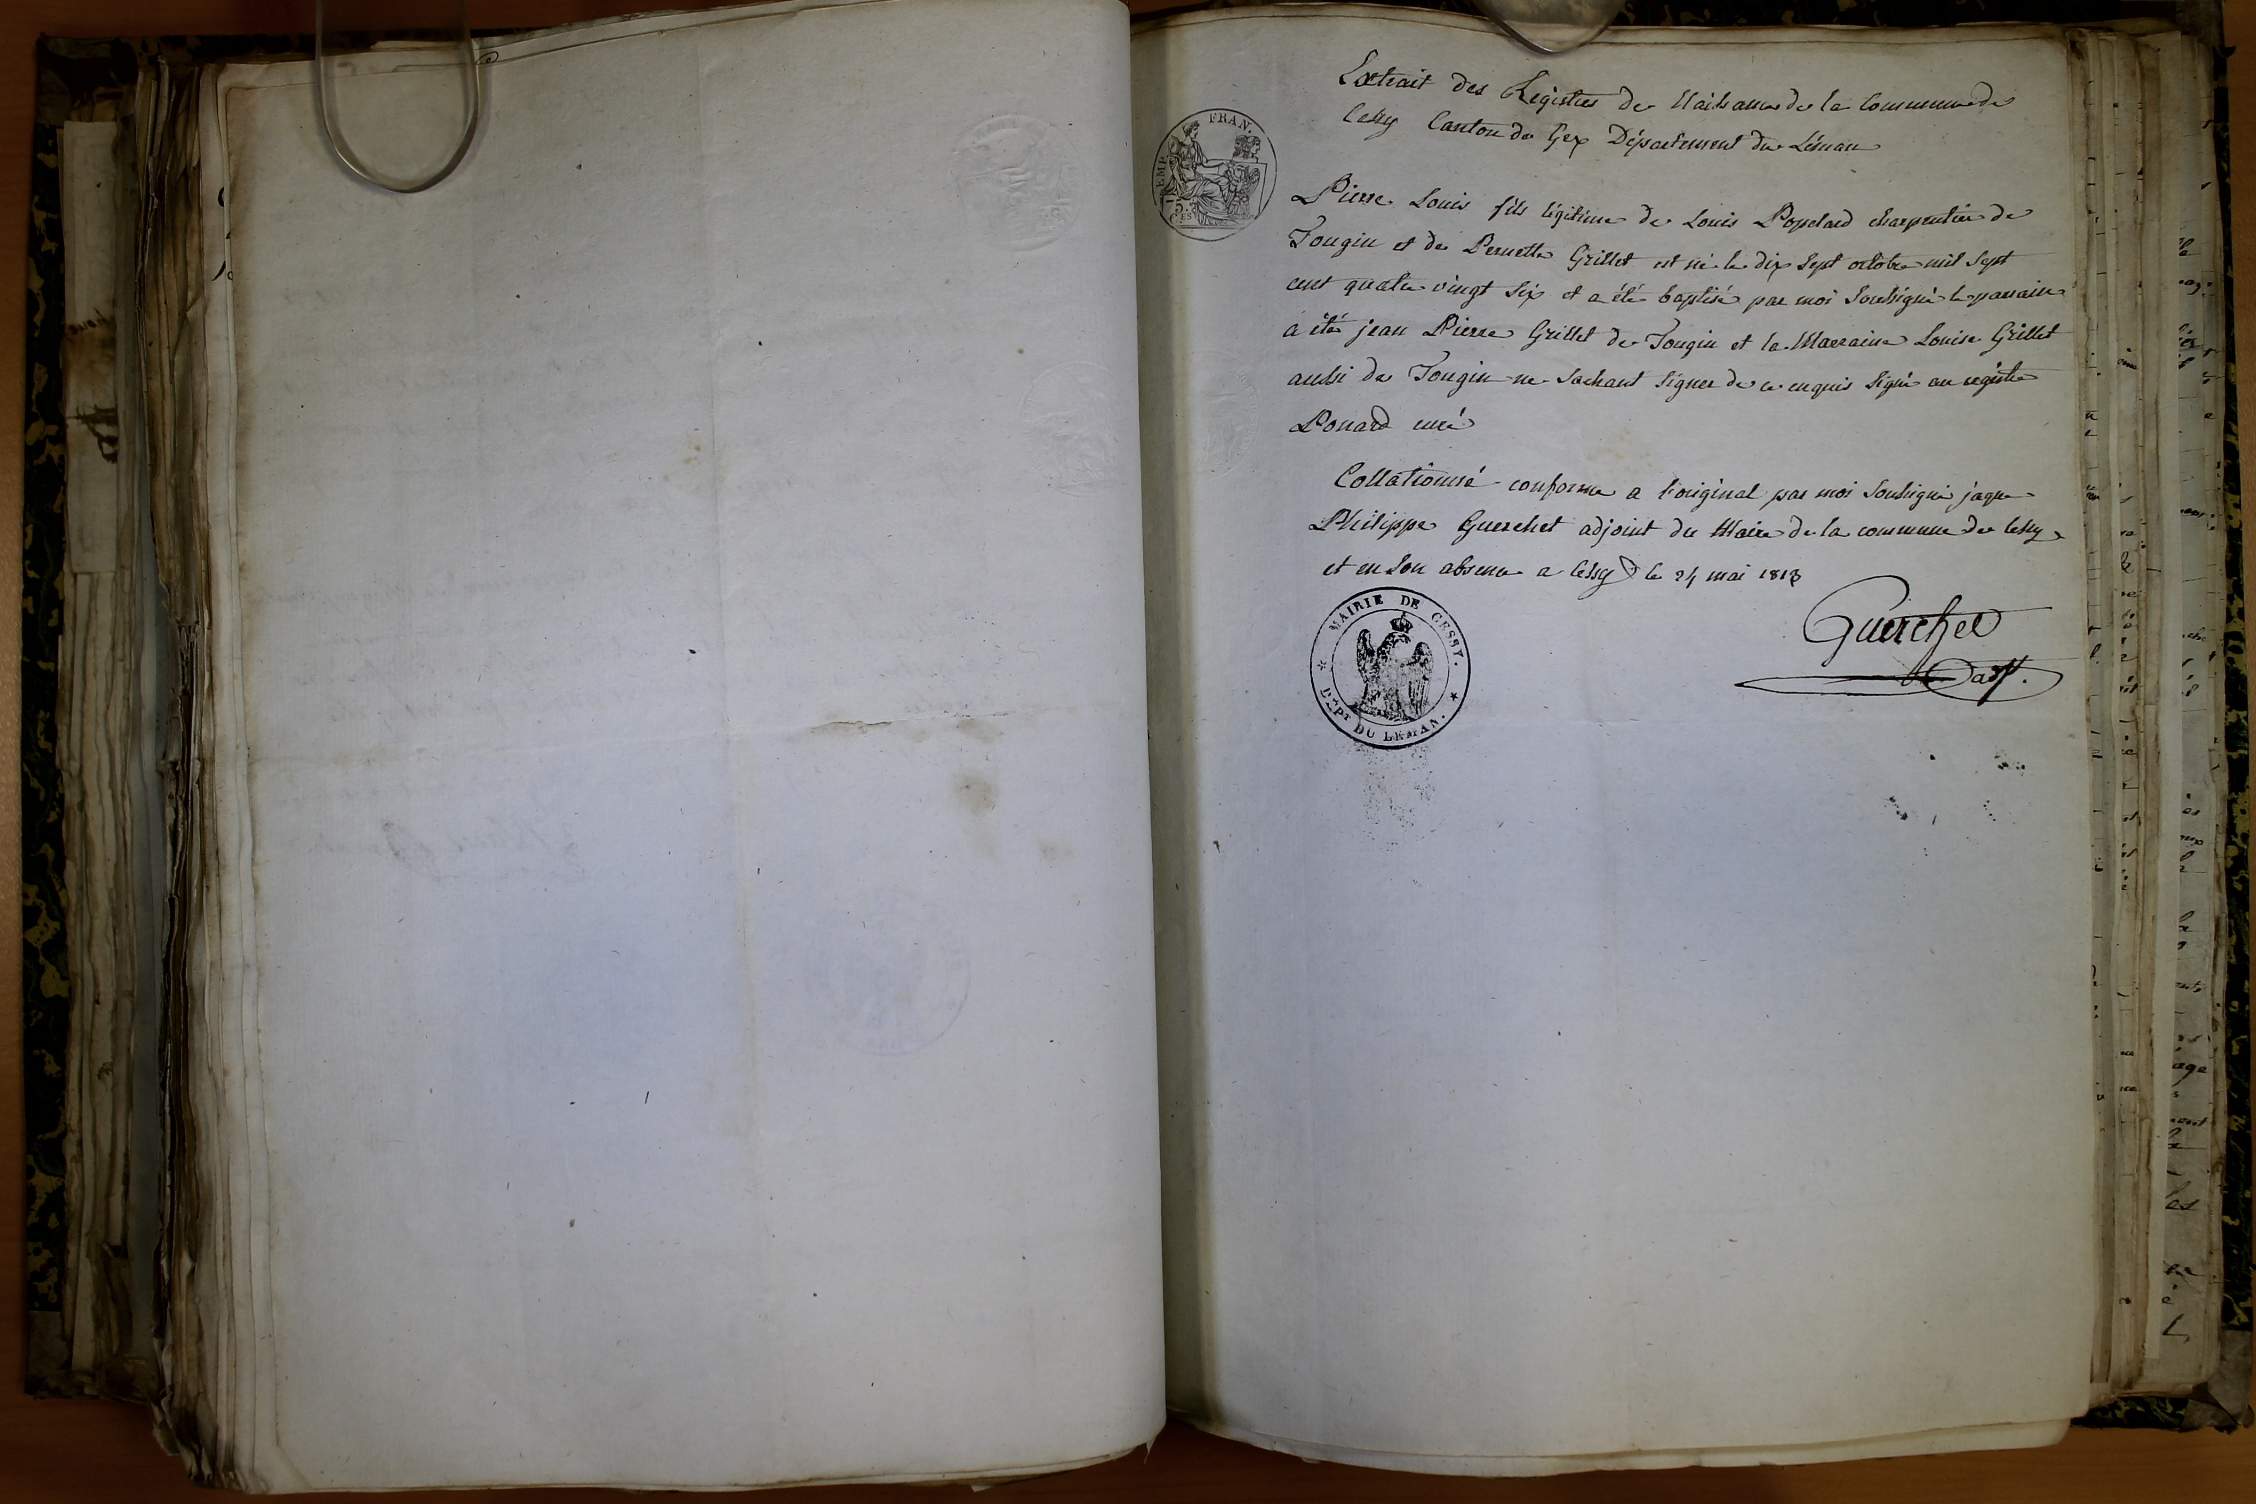 Extrait des Registres de Naissance de la Commune de
Cessy Canton de Gex Département du Léman
EMP. FRAN.
75. CES
Pierre Louis fils légitime de Louis Popelard charpentier de
Tougin et de Pernette Grillet est né le dix sept octobre mil sept
cent quatre vingt six et a été baptisé par moi soussigné le parrain
a été jean Pierre Grillet de Tougin et la Marraine Louise Grillet
aussi de Tougin ne sachant signer de ce enquis signé au registre
Ponard curé
Collationné conforme a l'original par moi soussigné jaque
Philippe Guerchet adjoint du Maire de la commune de Cessy
et en son absence a Cessy le 24 mai 1813
Guerchet
adjt.
MAIRIE DE CESSY.
DÉPT DU LÉMAN.